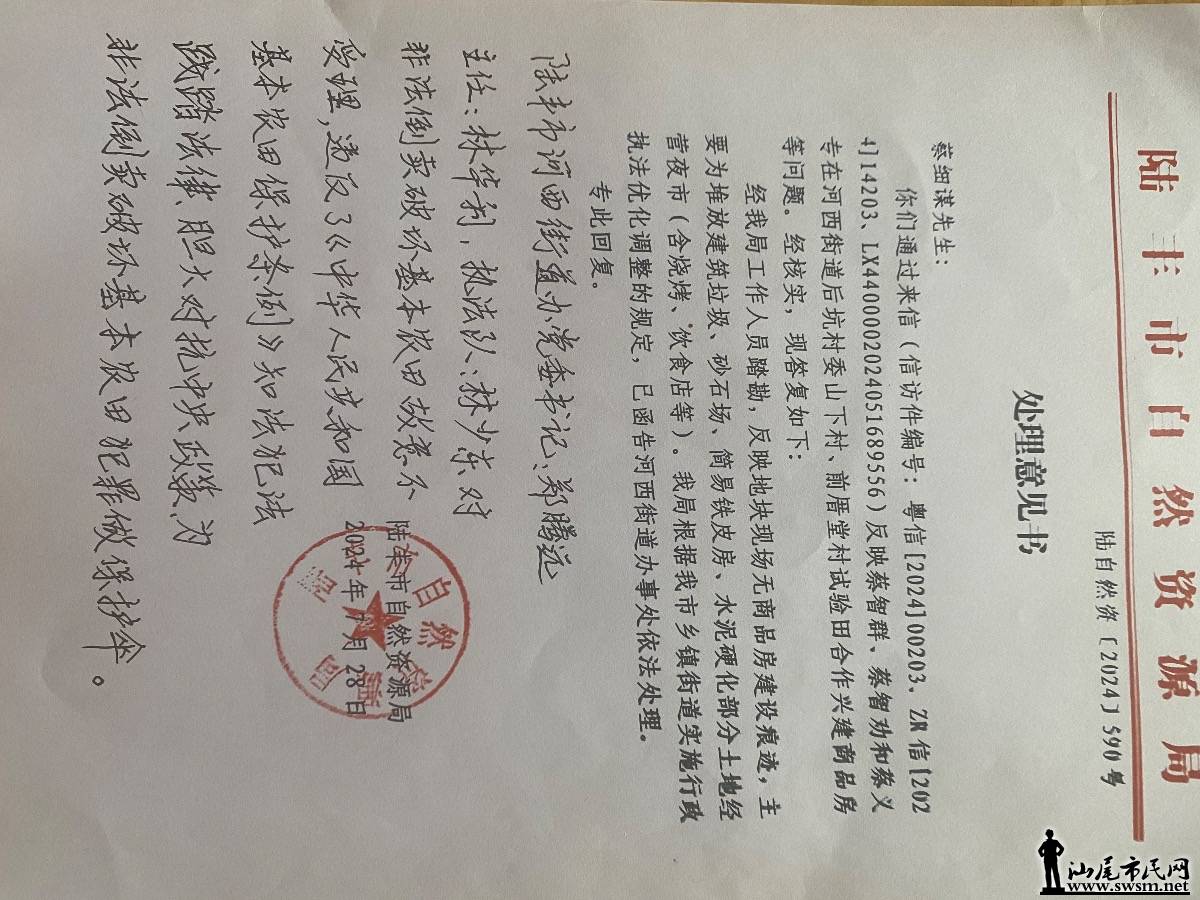 陆丰市自然资源局
陆自然资〔2024〕590号
处理意见书
蔡细谋先生：
你们通过来信（信访件编号：粤信[2024]00203、ZR信[202
4]14203、LX440000202405168955​6）反映蔡智群、蔡智劝和蔡义
专在河西街道后坑村委山下村、前厝堂村试验田合作兴建商品房
等问题。经核实，现答复如下：
经我局工作人员踏勘，反映地块现场无商品房建设痕迹，主
要为堆放建筑垃圾、砂石场、简易铁皮房、水泥硬化部分土地经
营夜市（含烧烤、饮食店等）。我局根据我市乡镇街道实施行政
执法优化调整的规定，已函告河西街道办事处依法处理。
专此回复。
陆丰市自然资源局
2024年7月28日
陆丰市河西街道办党委书记：郑腾远
主任：林华利，执法队：林少东对
非法倒卖破坏基本农田故意不
受理，违反了《中华人民共和国
基本农田保护条例》知法犯法
践踏法律，胆大对抗中央政策，为
非法倒卖破坏基本农田犯罪做保护伞。
汕尾市民网
www.swsm.net